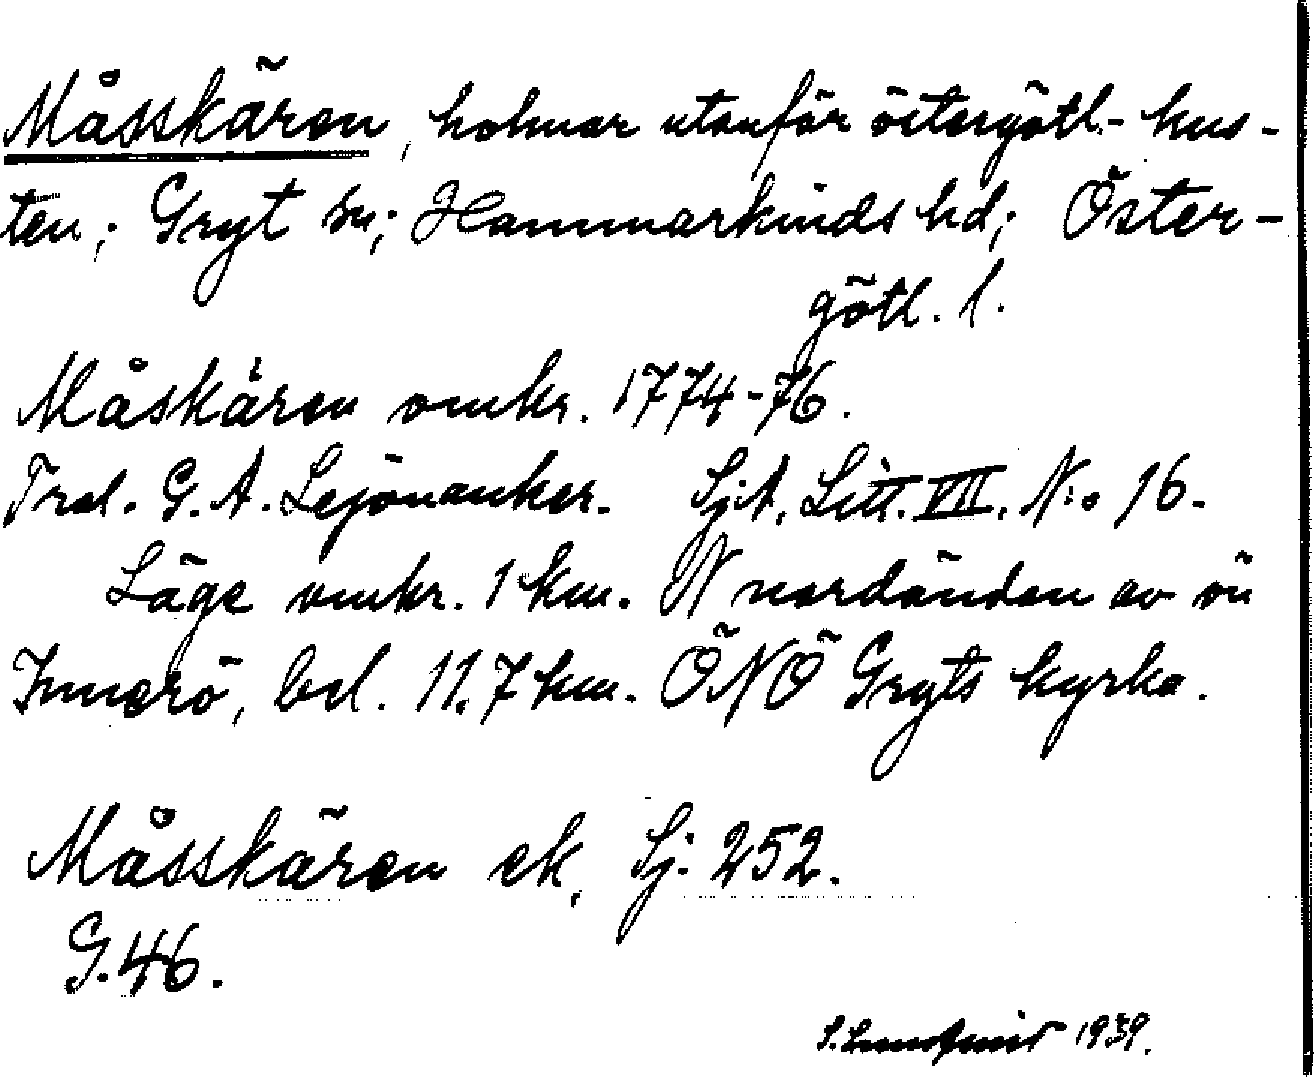 Måsskären, holmar utanför östergötl.- kus-
ten; Gryt sn; Hammarkinds hd; Öster-
götl. l.
Måskären omkr. 1774-76.
Trol. G. A. Lejonanker. Sj.A. Litt. VII. N:o 16.
Läge omkr. 1 km. N nordändan av ön
Innerö, bel. 11.7 km. ÖNÖ Gryts kyrka.
Måsskären ek, Sj. 252.
G.46.
S. Lundqvist 1939.